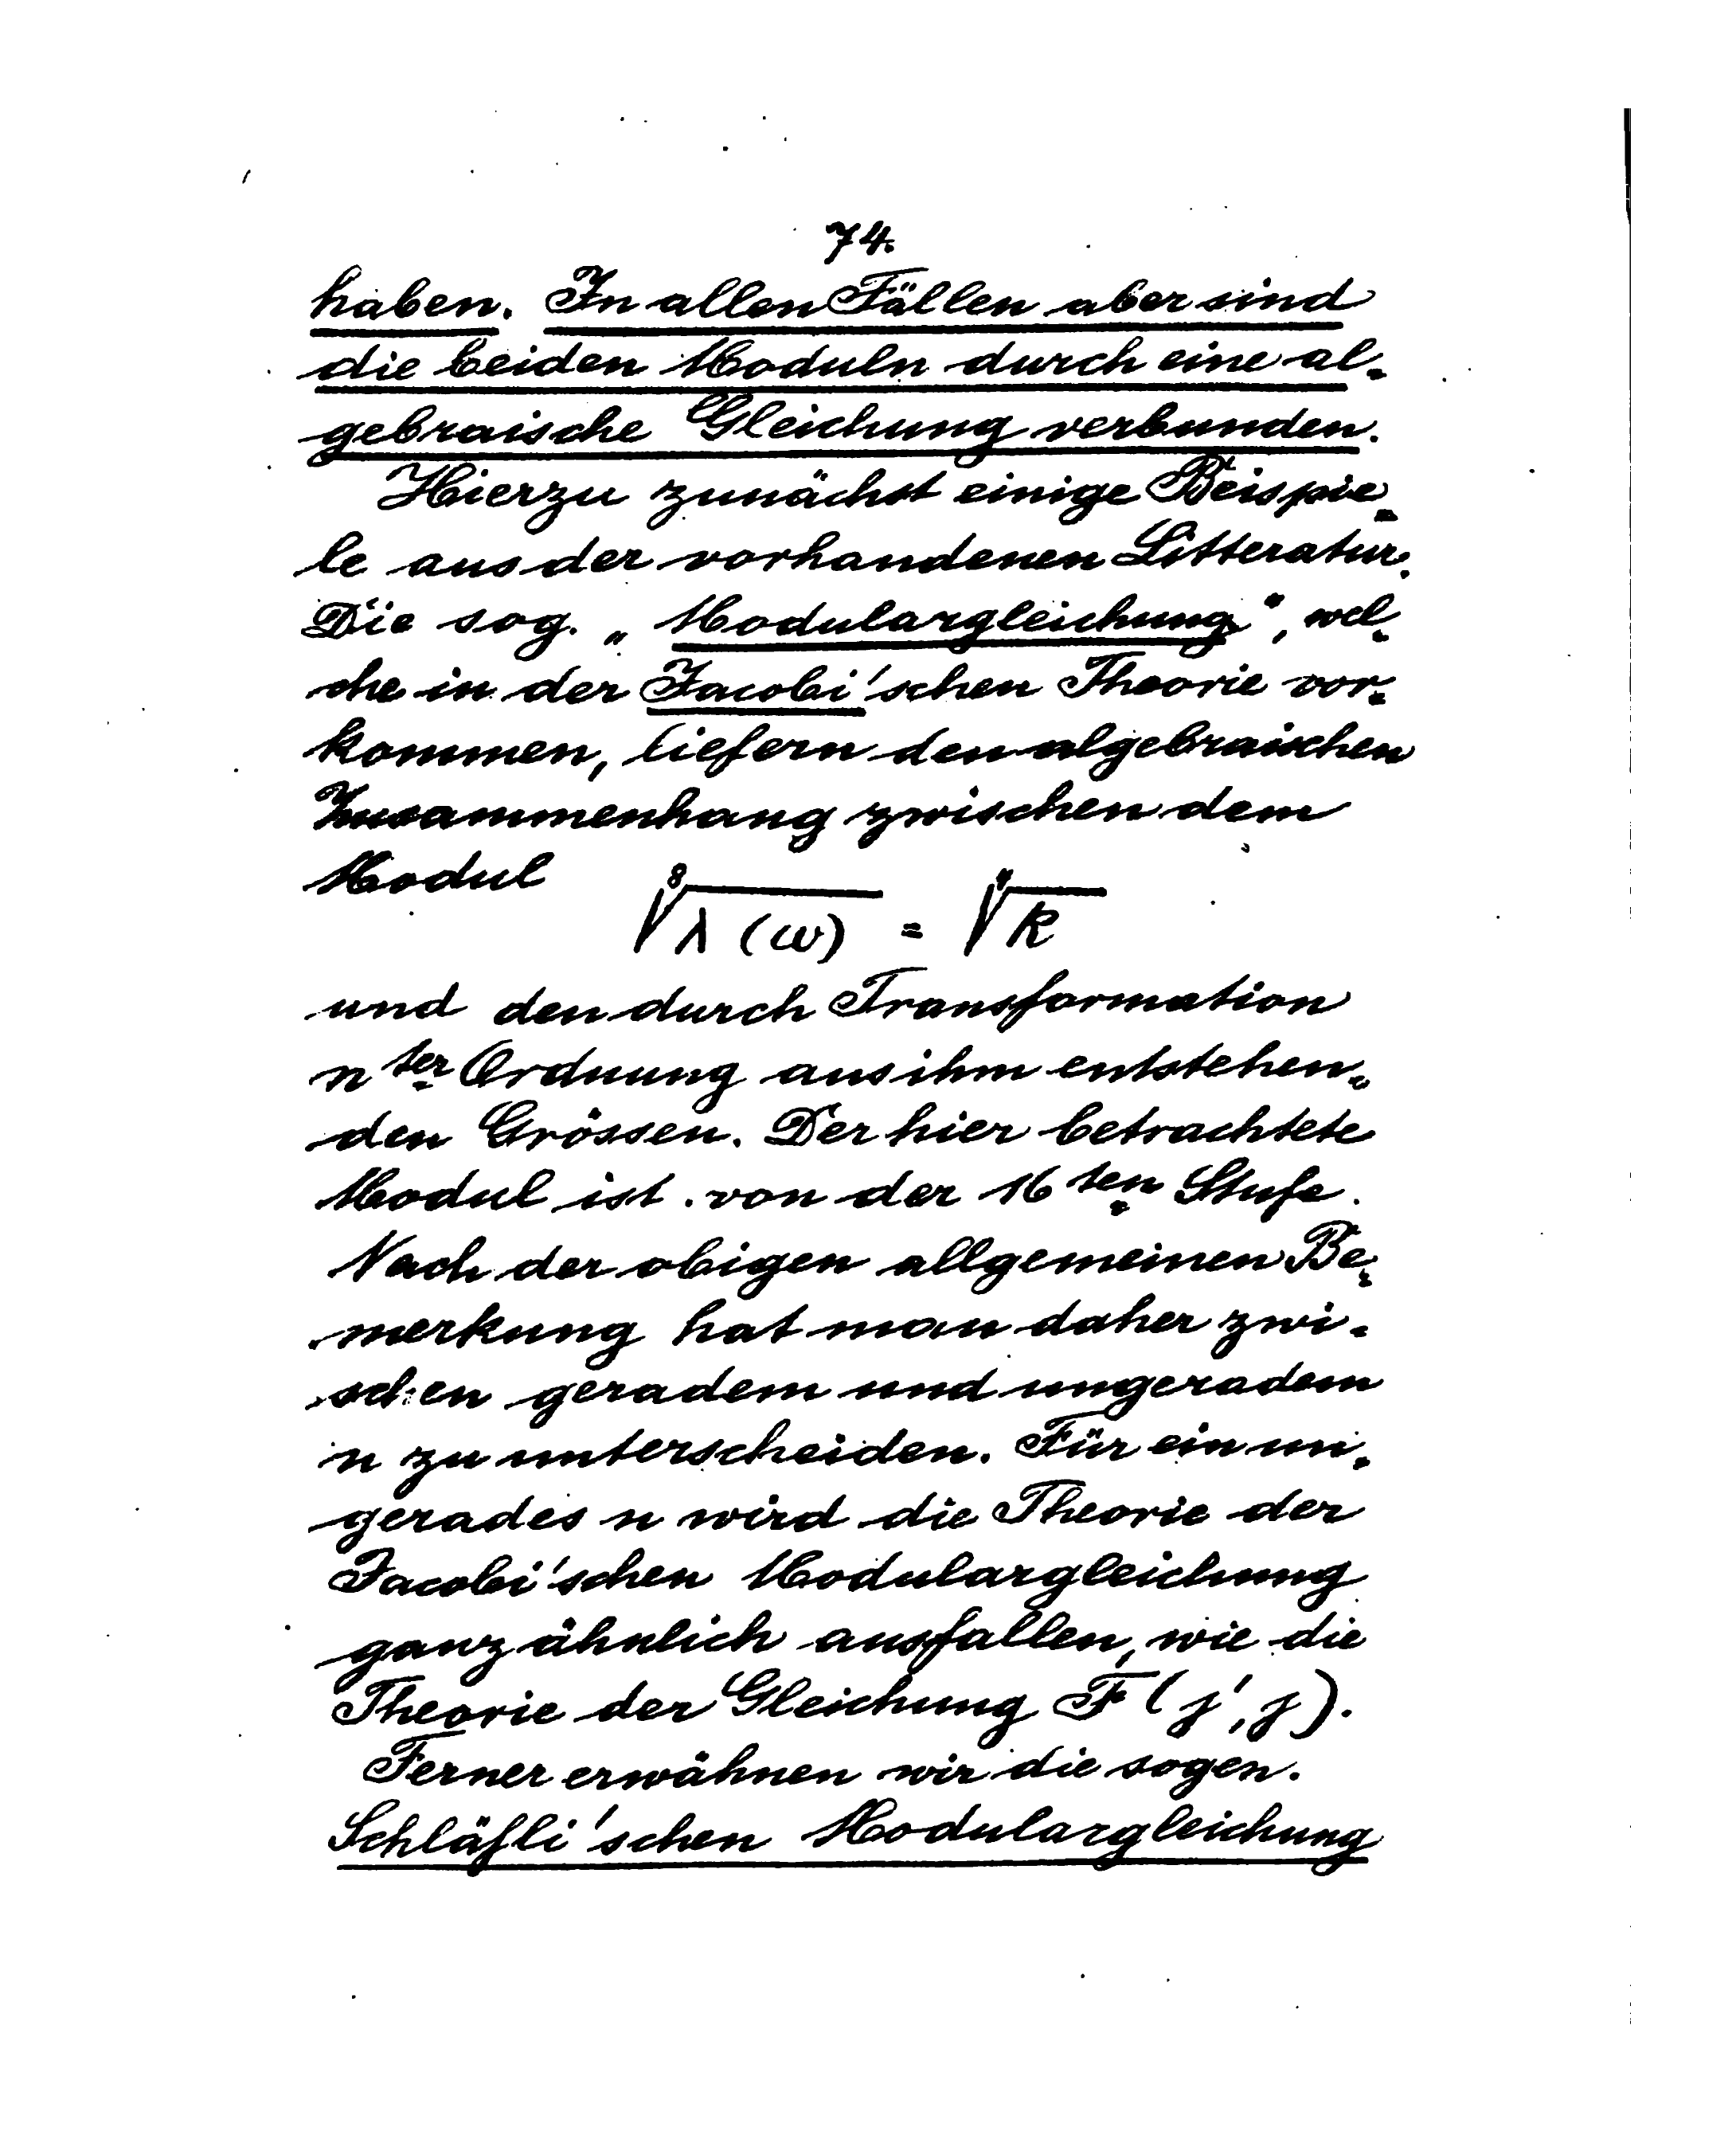 74.
haben. In allen Fällen aber sind
die beiden Moduln durch eine al-
gebraische Gleichung verbunden.
Hierzu zunächst einige Beispie-
le aus der vorhandenen Litteratur.
Die sog. „Modulargleichung“, wel-
che in der Jacobi'schen Theorie vor-
kommen, liefern den algebraischen
Zusammenhang zwischen dem
Modul
\sqrt[8]{λ(ω)} = \sqrt[4]{k}
und den durch Transformation
n ter Ordnung aus ihm entstehen-
den Grössen. Der hier betrachtete
Modul ist von der 16 ten Stufe.
Nach der obigen allgemeinen Be-
merkung hat man daher zwi-
schen geradem und ungeradem
n zu unterscheiden. Für ein un-
gerades n wird die Theorie der
Jacobi'schen Modulargleichung
ganz ähnlich ausfallen, wie die
Theorie der Gleichung F (j', j).
Ferner erwähnen wir die sogen.
Schläfli'schen Modulargleichung